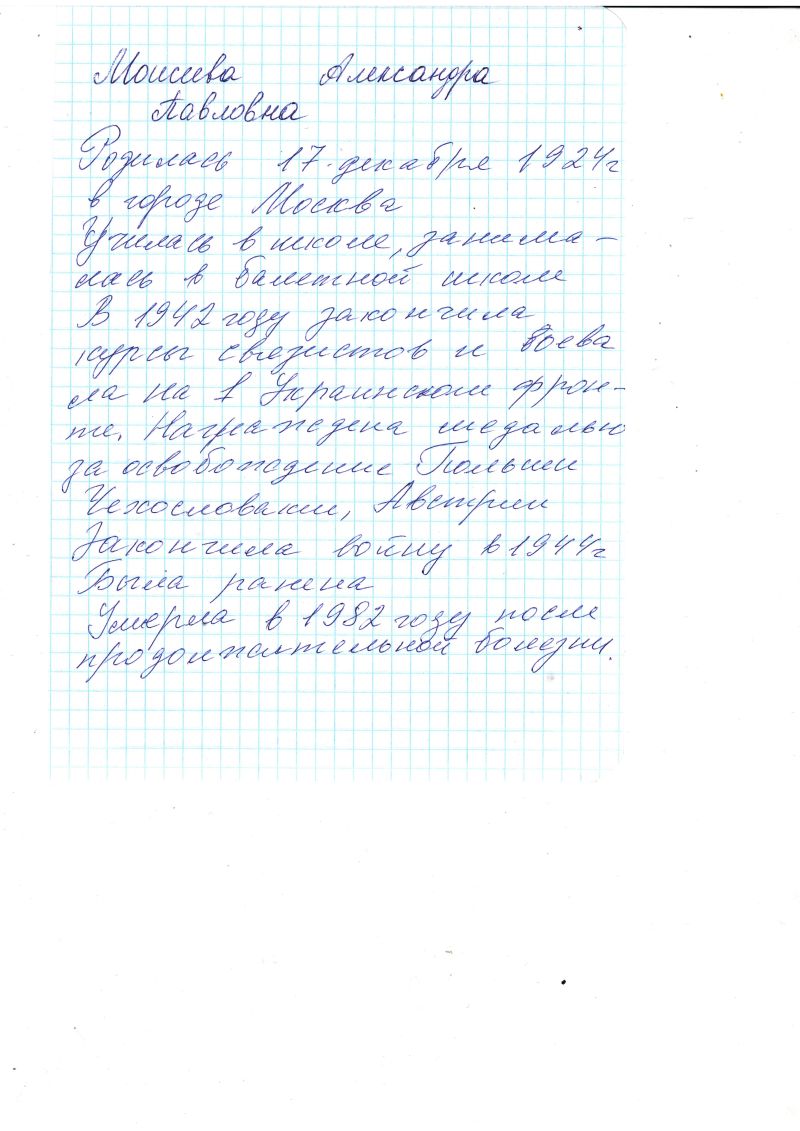 Моисеева Александра
Павловна
Родилась 17 декабря 1924г
в городе Москва
Училась в школе, занима-
лась в балетной школе
В 1942 году закончила
курсы связистов и воева
ла на 1 Украинском фрон-
те. Награждена медалью
за освобождение Польши
Чехословакии, Австрии
Закончила войну в 1944г
Была ранена
Умерла в 1982 году после
продолжительной болезни.